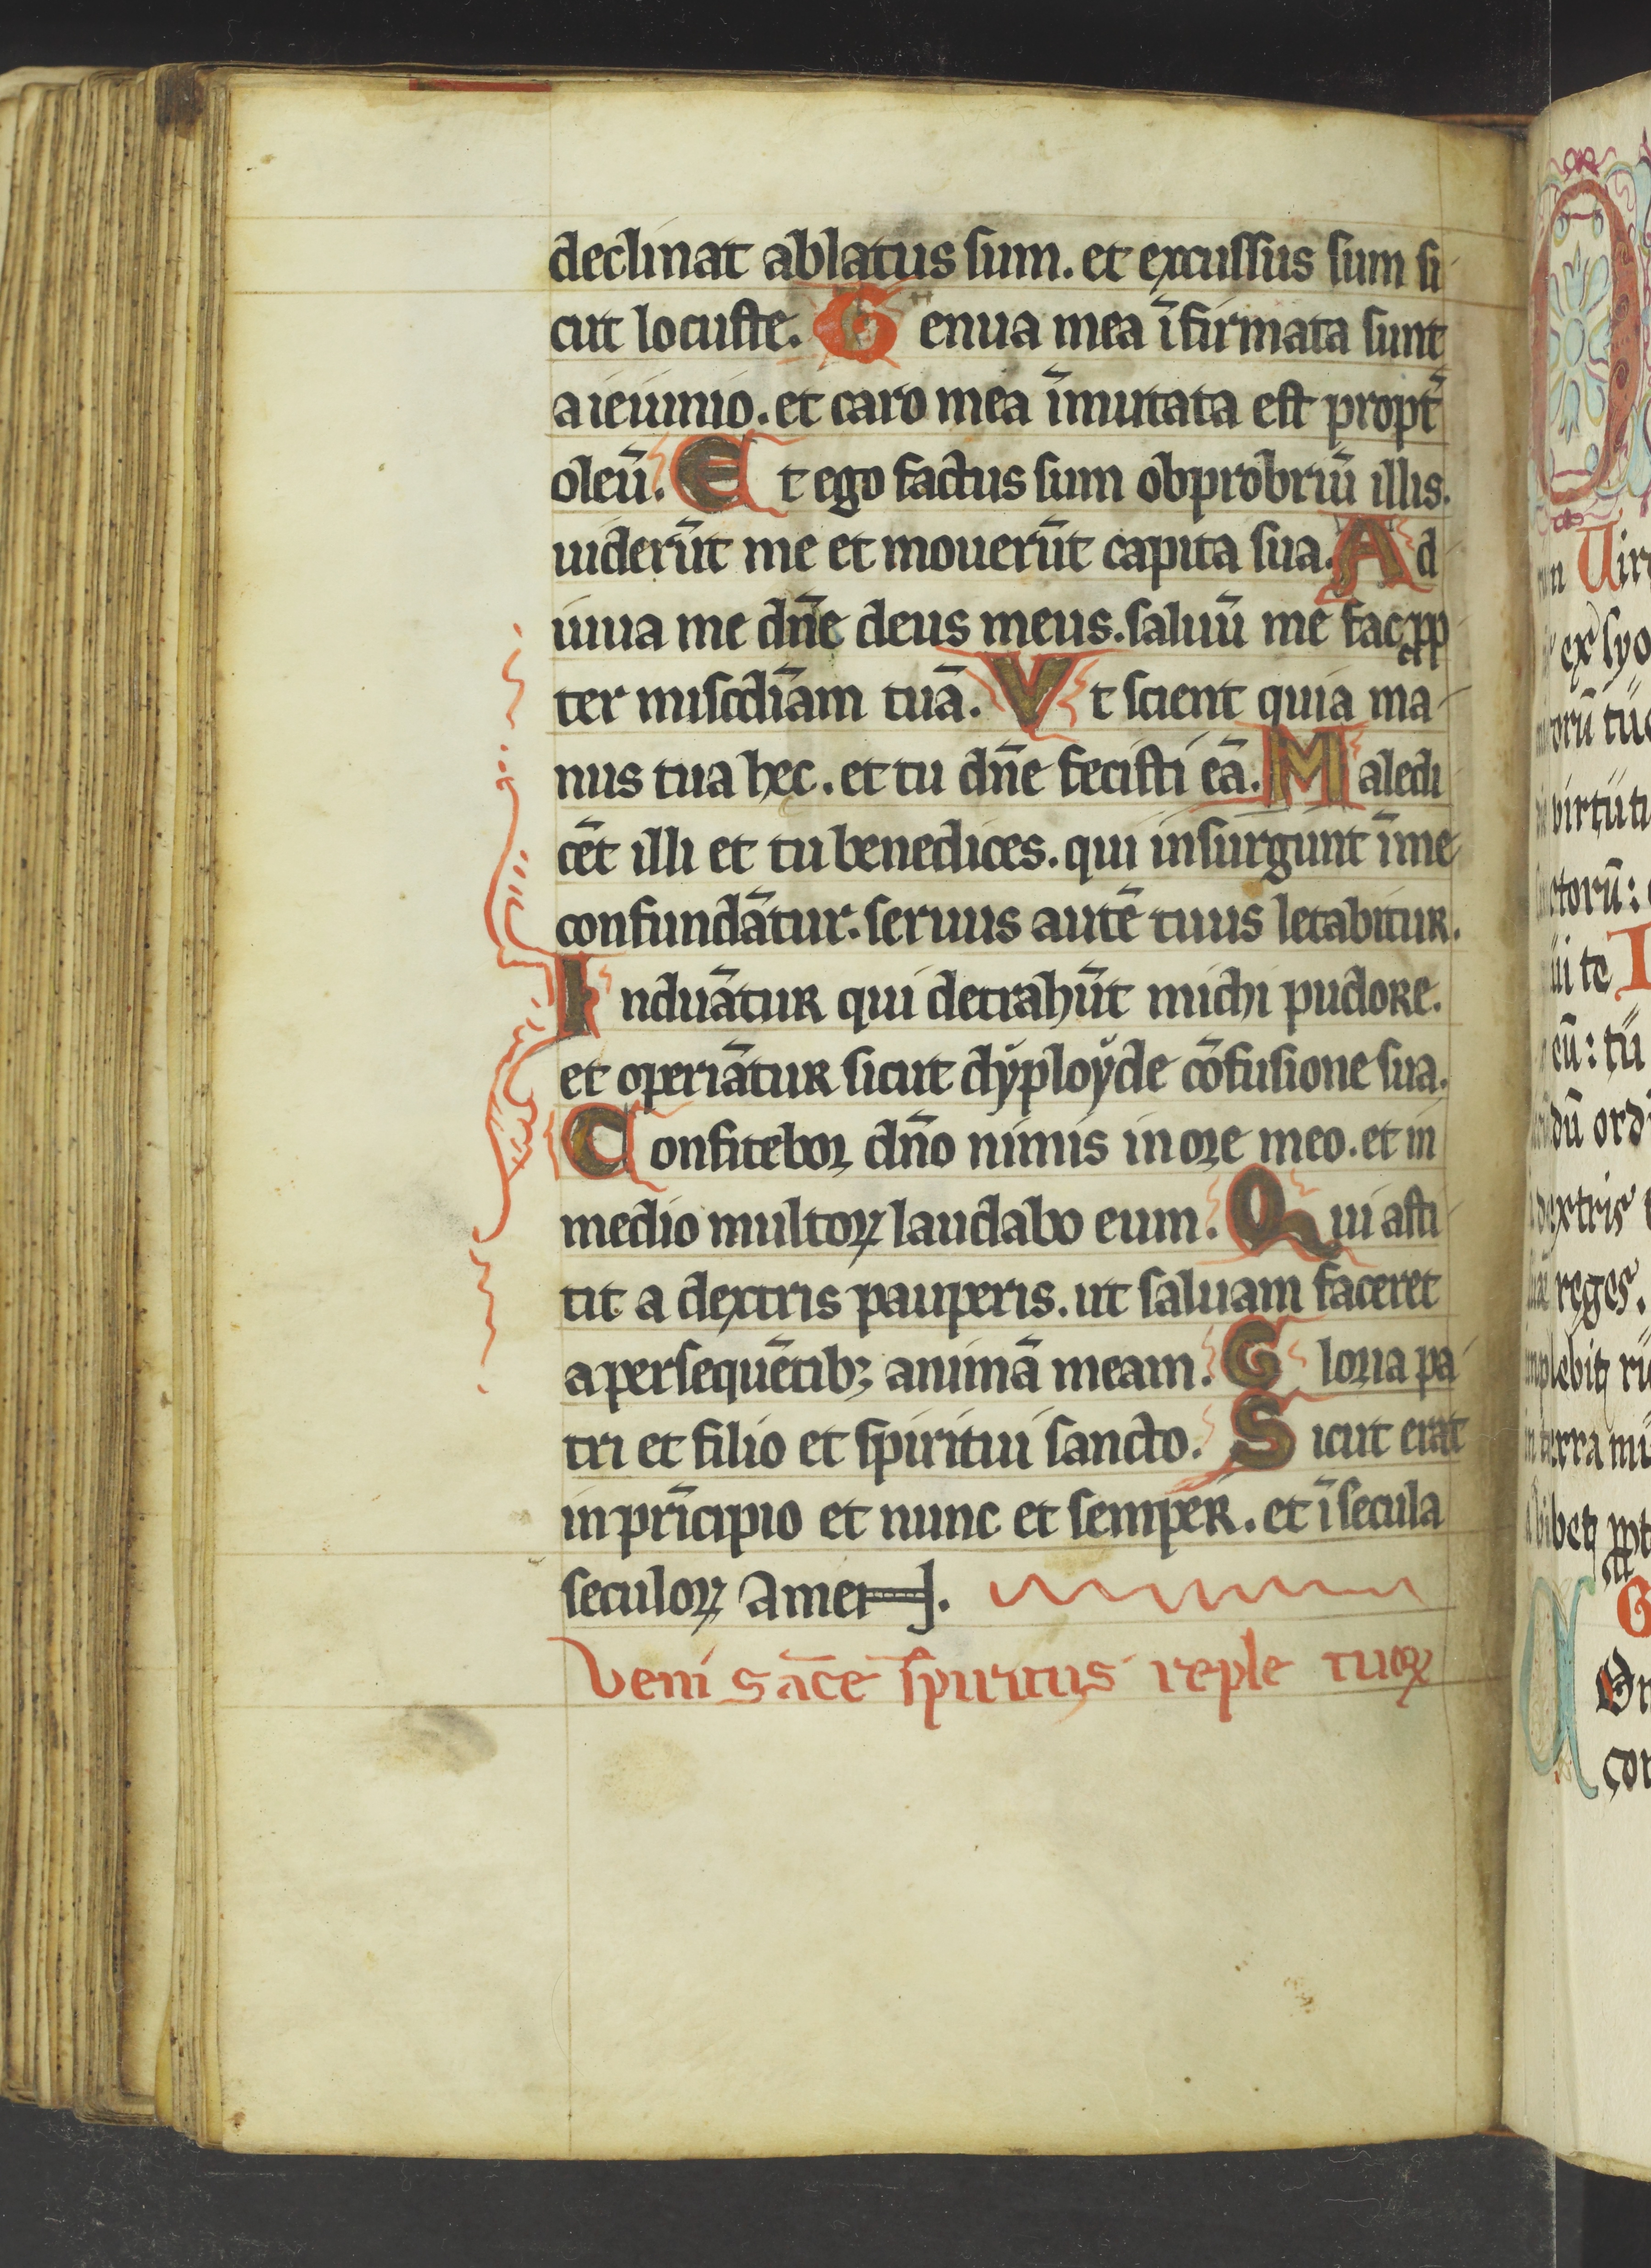 declinat ablatus sum. et excussus sum si
cut locuste. Genua mea īfirmata sunt
a ieiunio. et caro mea īmutata est propt̄
oleū. Et ego factus sum obprobriū illis.
uiderūt me et mouerūt capita sua. Ad
iuua me dn̄e deus meus. saluū me fac pp
ter miscdiām tuā. Vt scient quia ma
nus tua hec. et tu dn̄e fecisti eā. Maledi
cēt illi et tu benedices. qui insurgunt īme
confundātur. seruus autē tuus letabitur.
Induātur qui detrahūt michi pudore.
et operiātur sicut dyployde cōfusione sua.
Confitebor dn̄o nimis in ore meo. et in
medio multoꝝ laudabo eum. Qui asti
tit a dextris pauperis. ut saluam faceret
a persequētibꝫ animā meam. Gloria pa
tri et filio et spiritui sancto. Sicut erat
in prīcipio et nunc et semper. et ī secula
seculoꝝ Amen.
Veni sāce spiritus reple tuoꝝ